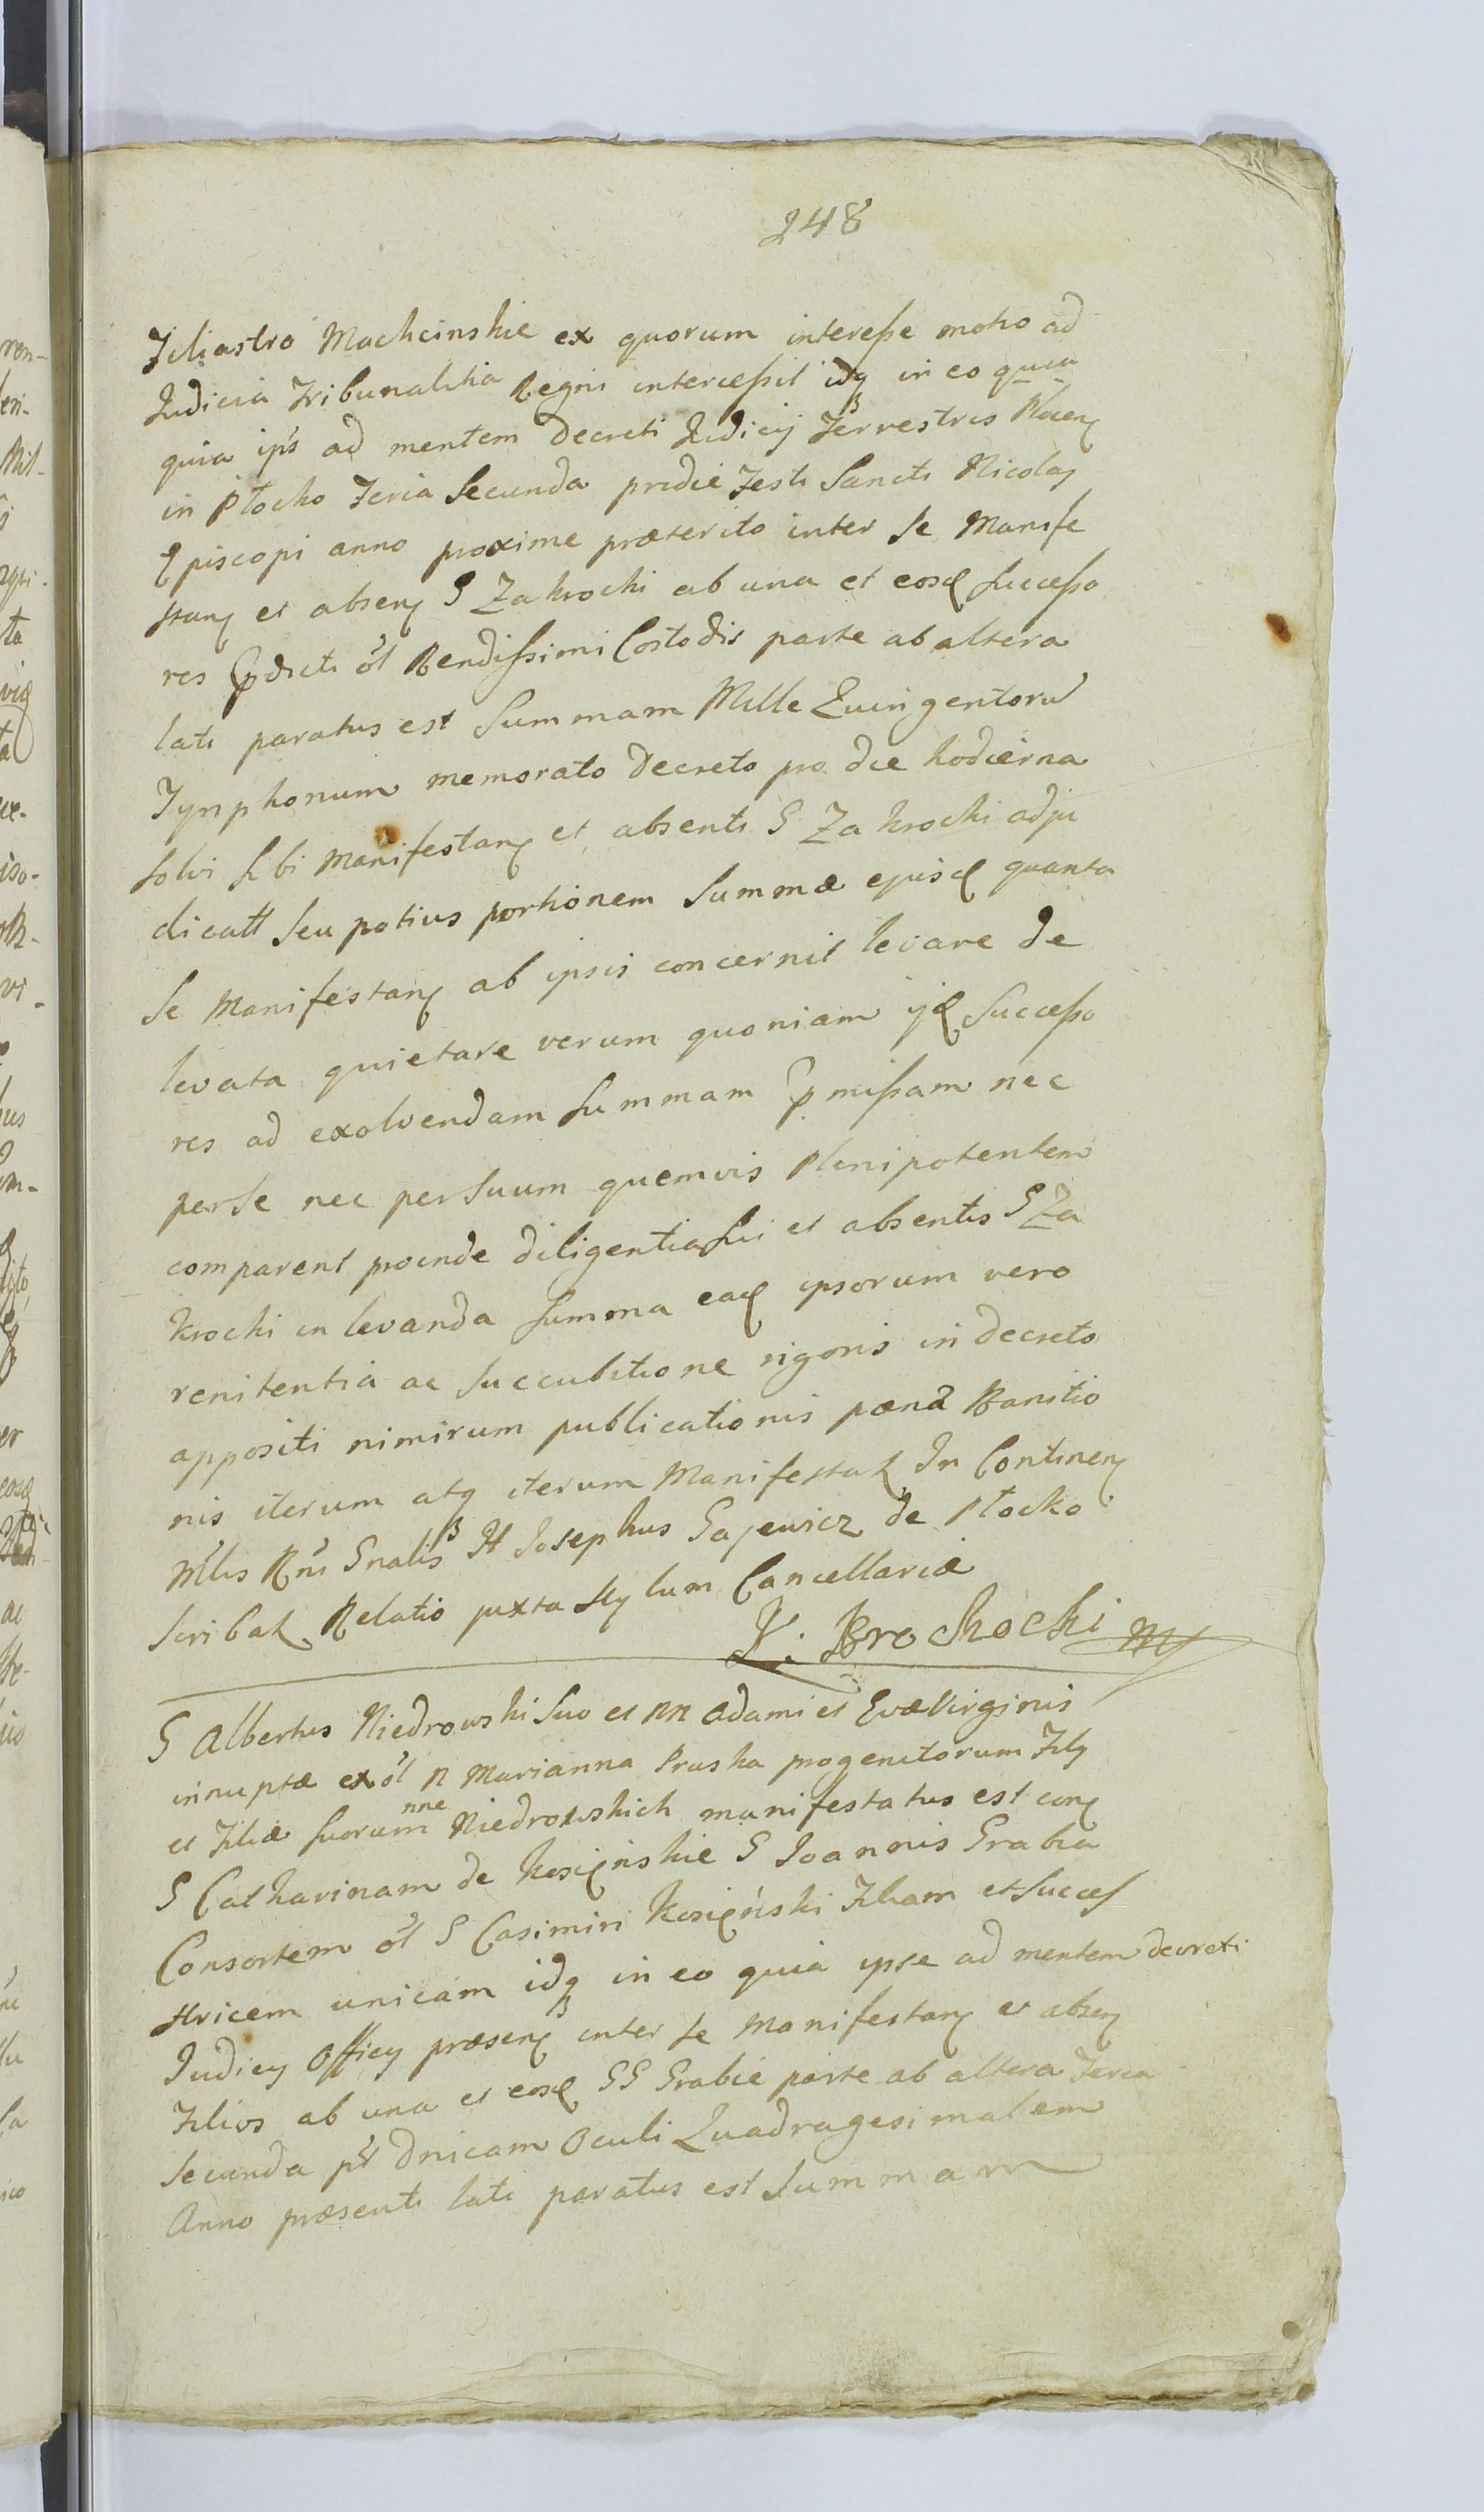 248
Filiastro Machcinskie ex quorum interesse motio ad
Judicia Tribunalitia Regni intercessit idq in eo quia
quia ips ad mentem Decreti Judicij Terrestris Plocen
in Płocko Feria Secunda pridie Festi Sancti Nicolai
Episcopi anno proxime præterito inter Se Manife
stan et absen G Zakrocki ab una et eosd Successo
res Prdicti ol Rendissimi Costodis parte ab altera
lati paratus est Summam Mille Quingentoru
Tynphonum memorato Decreto pro die hodierna
solvi Sibi Manifestan et absenti G Zakrocki adju
dicatt Seu potius portionem Summæ ejusd quanta
Se Manifestan ab ipsis concernit levare de
levata quietare verum quoniam ijd Successo
res ad exolvendam Summam Prmissam nec
perSe nec perSuum quemvis Plenipotentem
comparent proinde diligentia Sui et absentis G Za
krocki in levanda Summa ead ipsorum vero
renitentia ac Succubitione rigoris in decreto
appositi nimirum publicationis pœna Banitio
nis iterum atq iterum Manifestat In Continen
Mlis Rni Gnalis H Josephus Gajewicz de Płocko
Scribat Relatio juxta Stylum Cancellariæ
K. Brochocki mp
G Albertus Niedrowski Suo et NN Adami et Evæ Virginis
innuptæ ex ol N Marianna Pruska progenitorum Filij
et Filiæ suorum nne Niedrowskich manifestatus est con
G Catharinam de Kosięńskie G Joannis Grabia
Consortem ol G Casimiri Kosięński Filiam et Succes
tricem unicam idq in eo quia ipse ad mentem decreti
Judicij Officij præsen inter se Manifestan et absen
Filios ab una et eosd GG Grabie parte ab altera Feria
Secunda pst Dnicam Oculi Quadragesimalem
Anno præsenti lati paratus est Summam